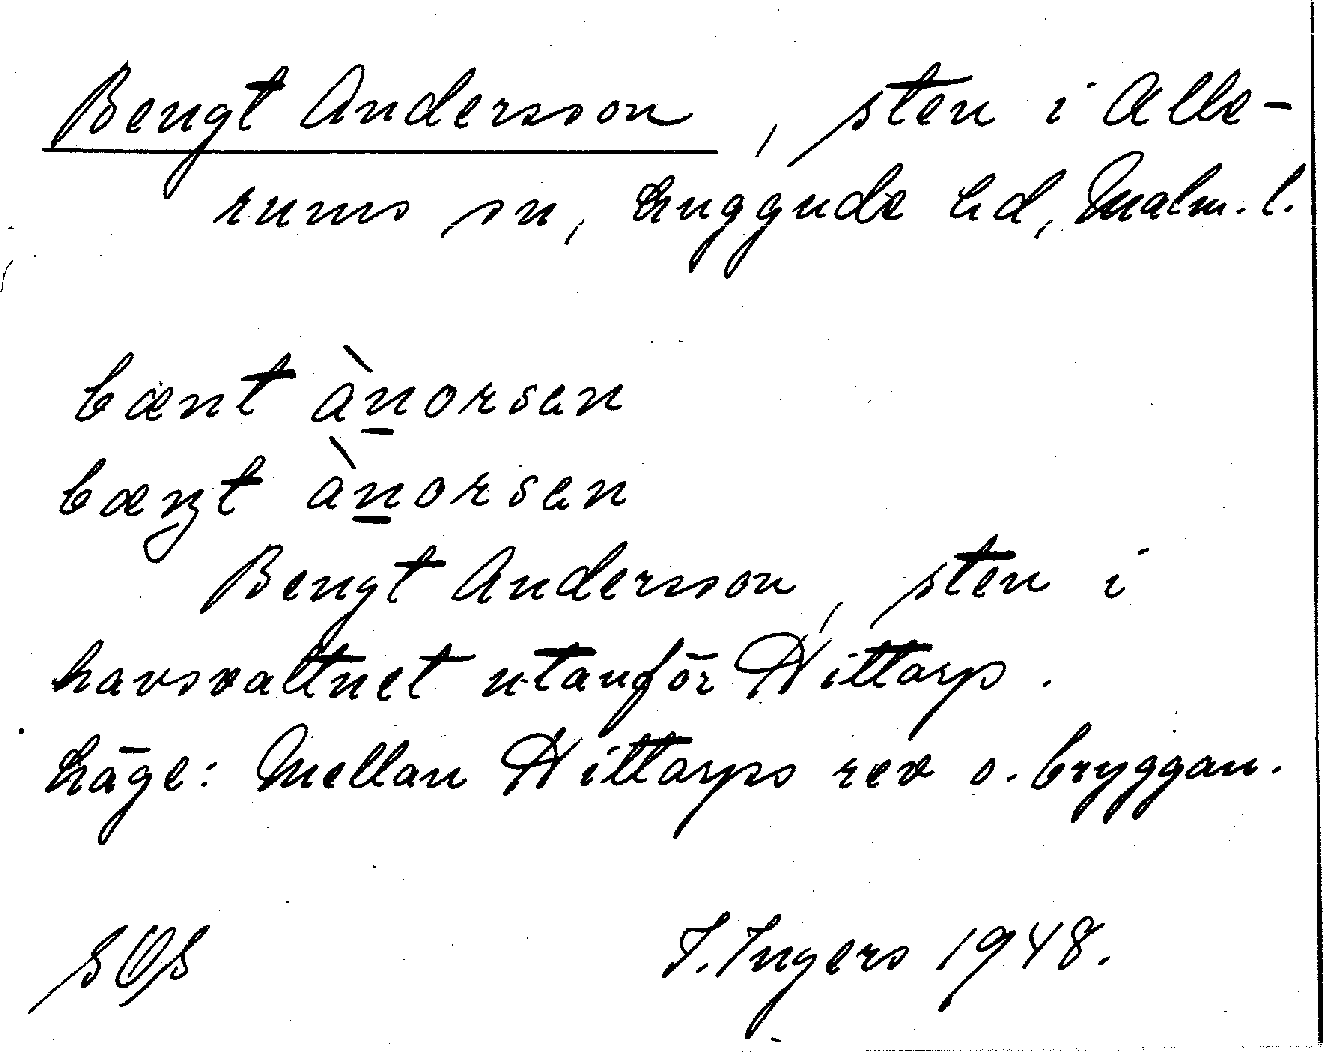 Bengt Andersson, sten i Alle-
rums sn, Luggude hd, Malm. l.
bænt ànorsen
bæŋt ànorsen
Bengt Andersson, sten i
havsvattnet utanför Hittarp.
Läge: Mellan Hittarps rev o. bryggan.
I. Ingers 1948.